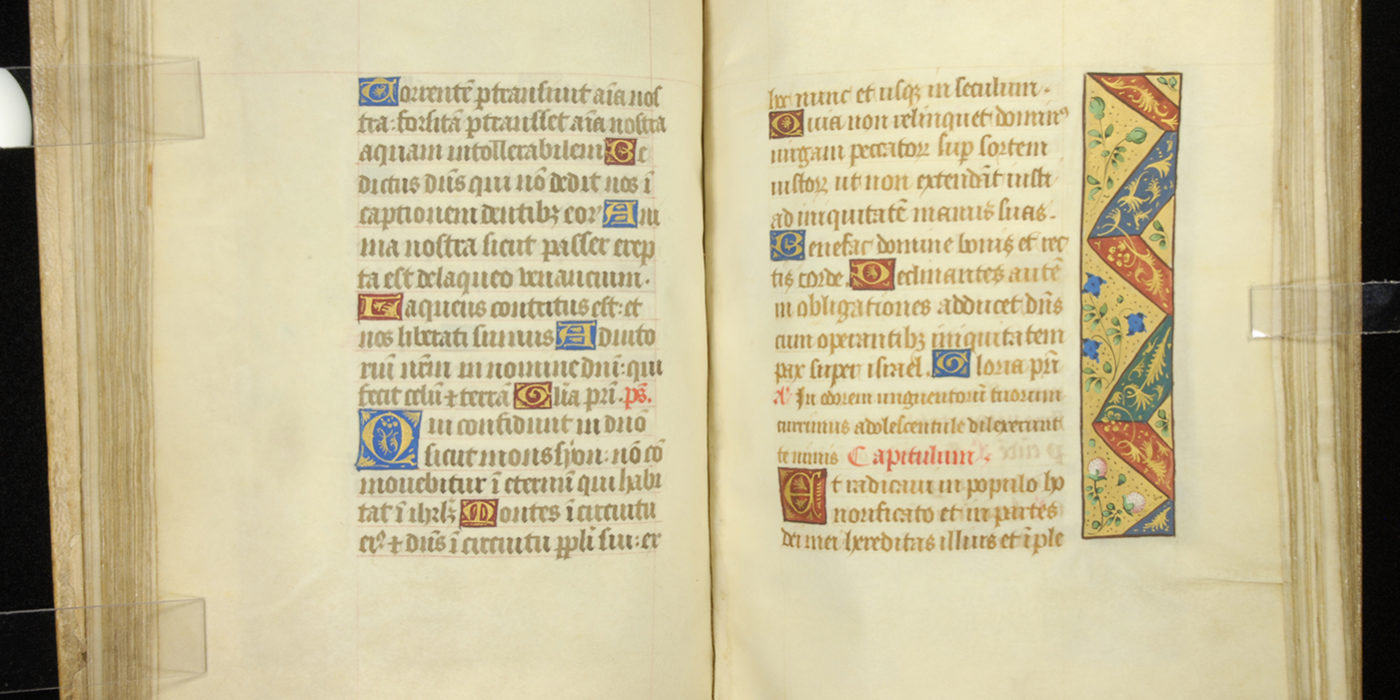 Torrentē ꝑtransiuit aīa nos
tra: forsitā ꝑtransisset aīa nostra
aquam intollerabilem Be
dictus dn̄s qui nō dedit nos ī
captionem dentibꝫ eoꝝ Ani
ma nostra sicut passer erep
ta est delaqueo venancium.
Laqueus contritus est: et
nos liberati sumus Adiuto
riū nr̄m in nomine dnī: qui
fecit celū ⁊ terrā Glīa prī. ps̄.
Qui confidunt in dnō
sicut mons syon: nō cō
mouebitur ī eternū qui habi
tat ī ihrlꝫ Montes ī circuitu
eiꝰ ⁊ dn̄s ī circuitu ppłi sui: ex
hoc nunc et usqꝫ in seculum.
Quia non relinquet dominꝰ
uirgam peccatoꝝ suꝑ sortem
iustoꝝ ut non extendāt iusti
ad iniquitatē manus suas.
Benefac domine bonis et rec
tis corde. Declinantes autē
in obligationes adducet dn̄s
cum operantibꝫ iniquitatem
pax super israel. Gloria prī
añ In odorem unguentorū tuorum
currimus adolescentule dilexerunt
te nimis Capitulum.
Et radicaui in populo ho
norificato et in partes
dei mei hereditas illius et ī ple